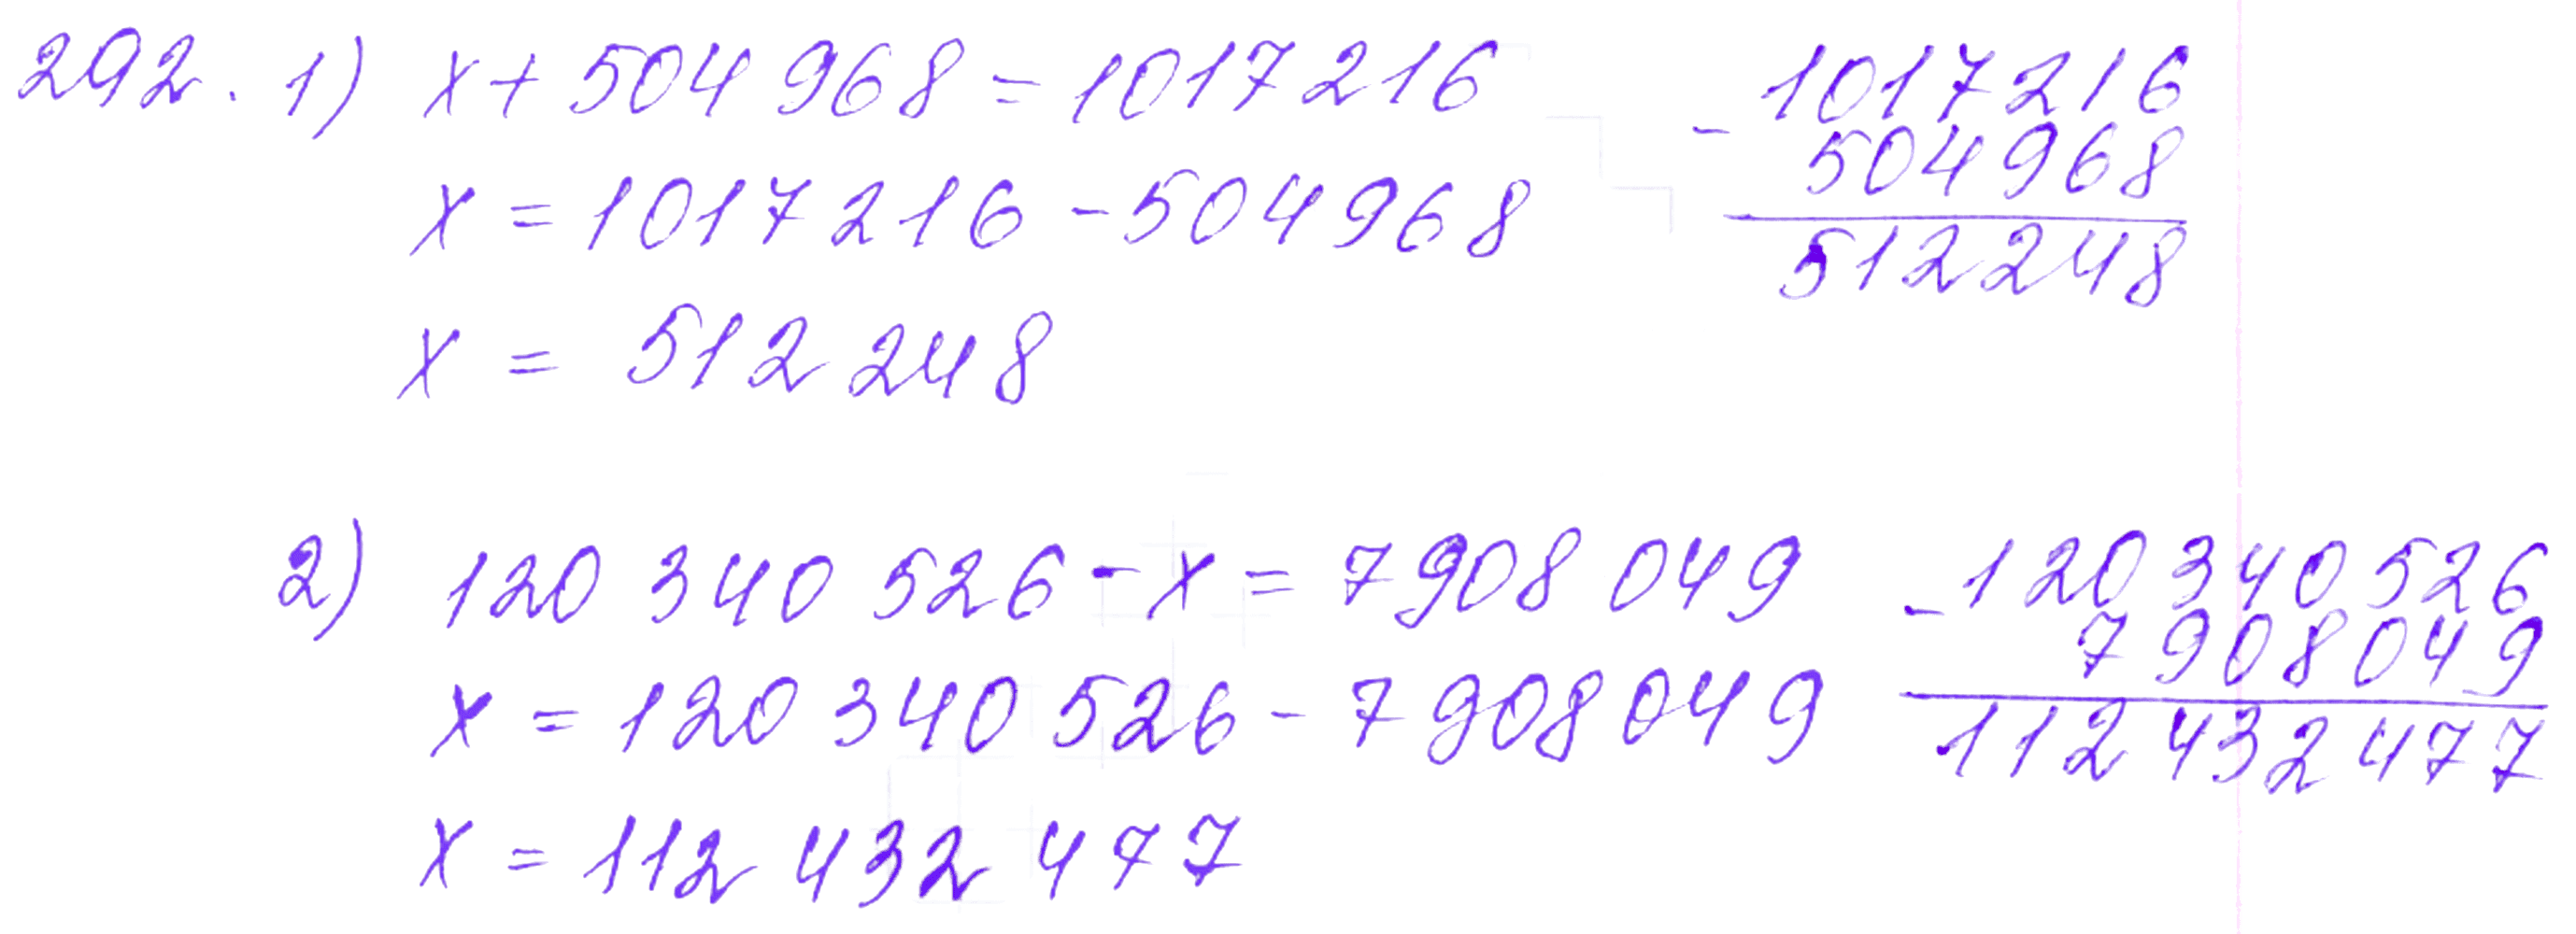 292. 1) x + 504 968 = 1017 216
x = 1017 216 - 504 968
x = 512 248
- 1017 216
504 968
512 248
2) 120 340 526 - x = 7908 049
x = 120 340 526 - 7 908 049
x = 112 432 477
- 120 340 526
7 908 049
112 432 477